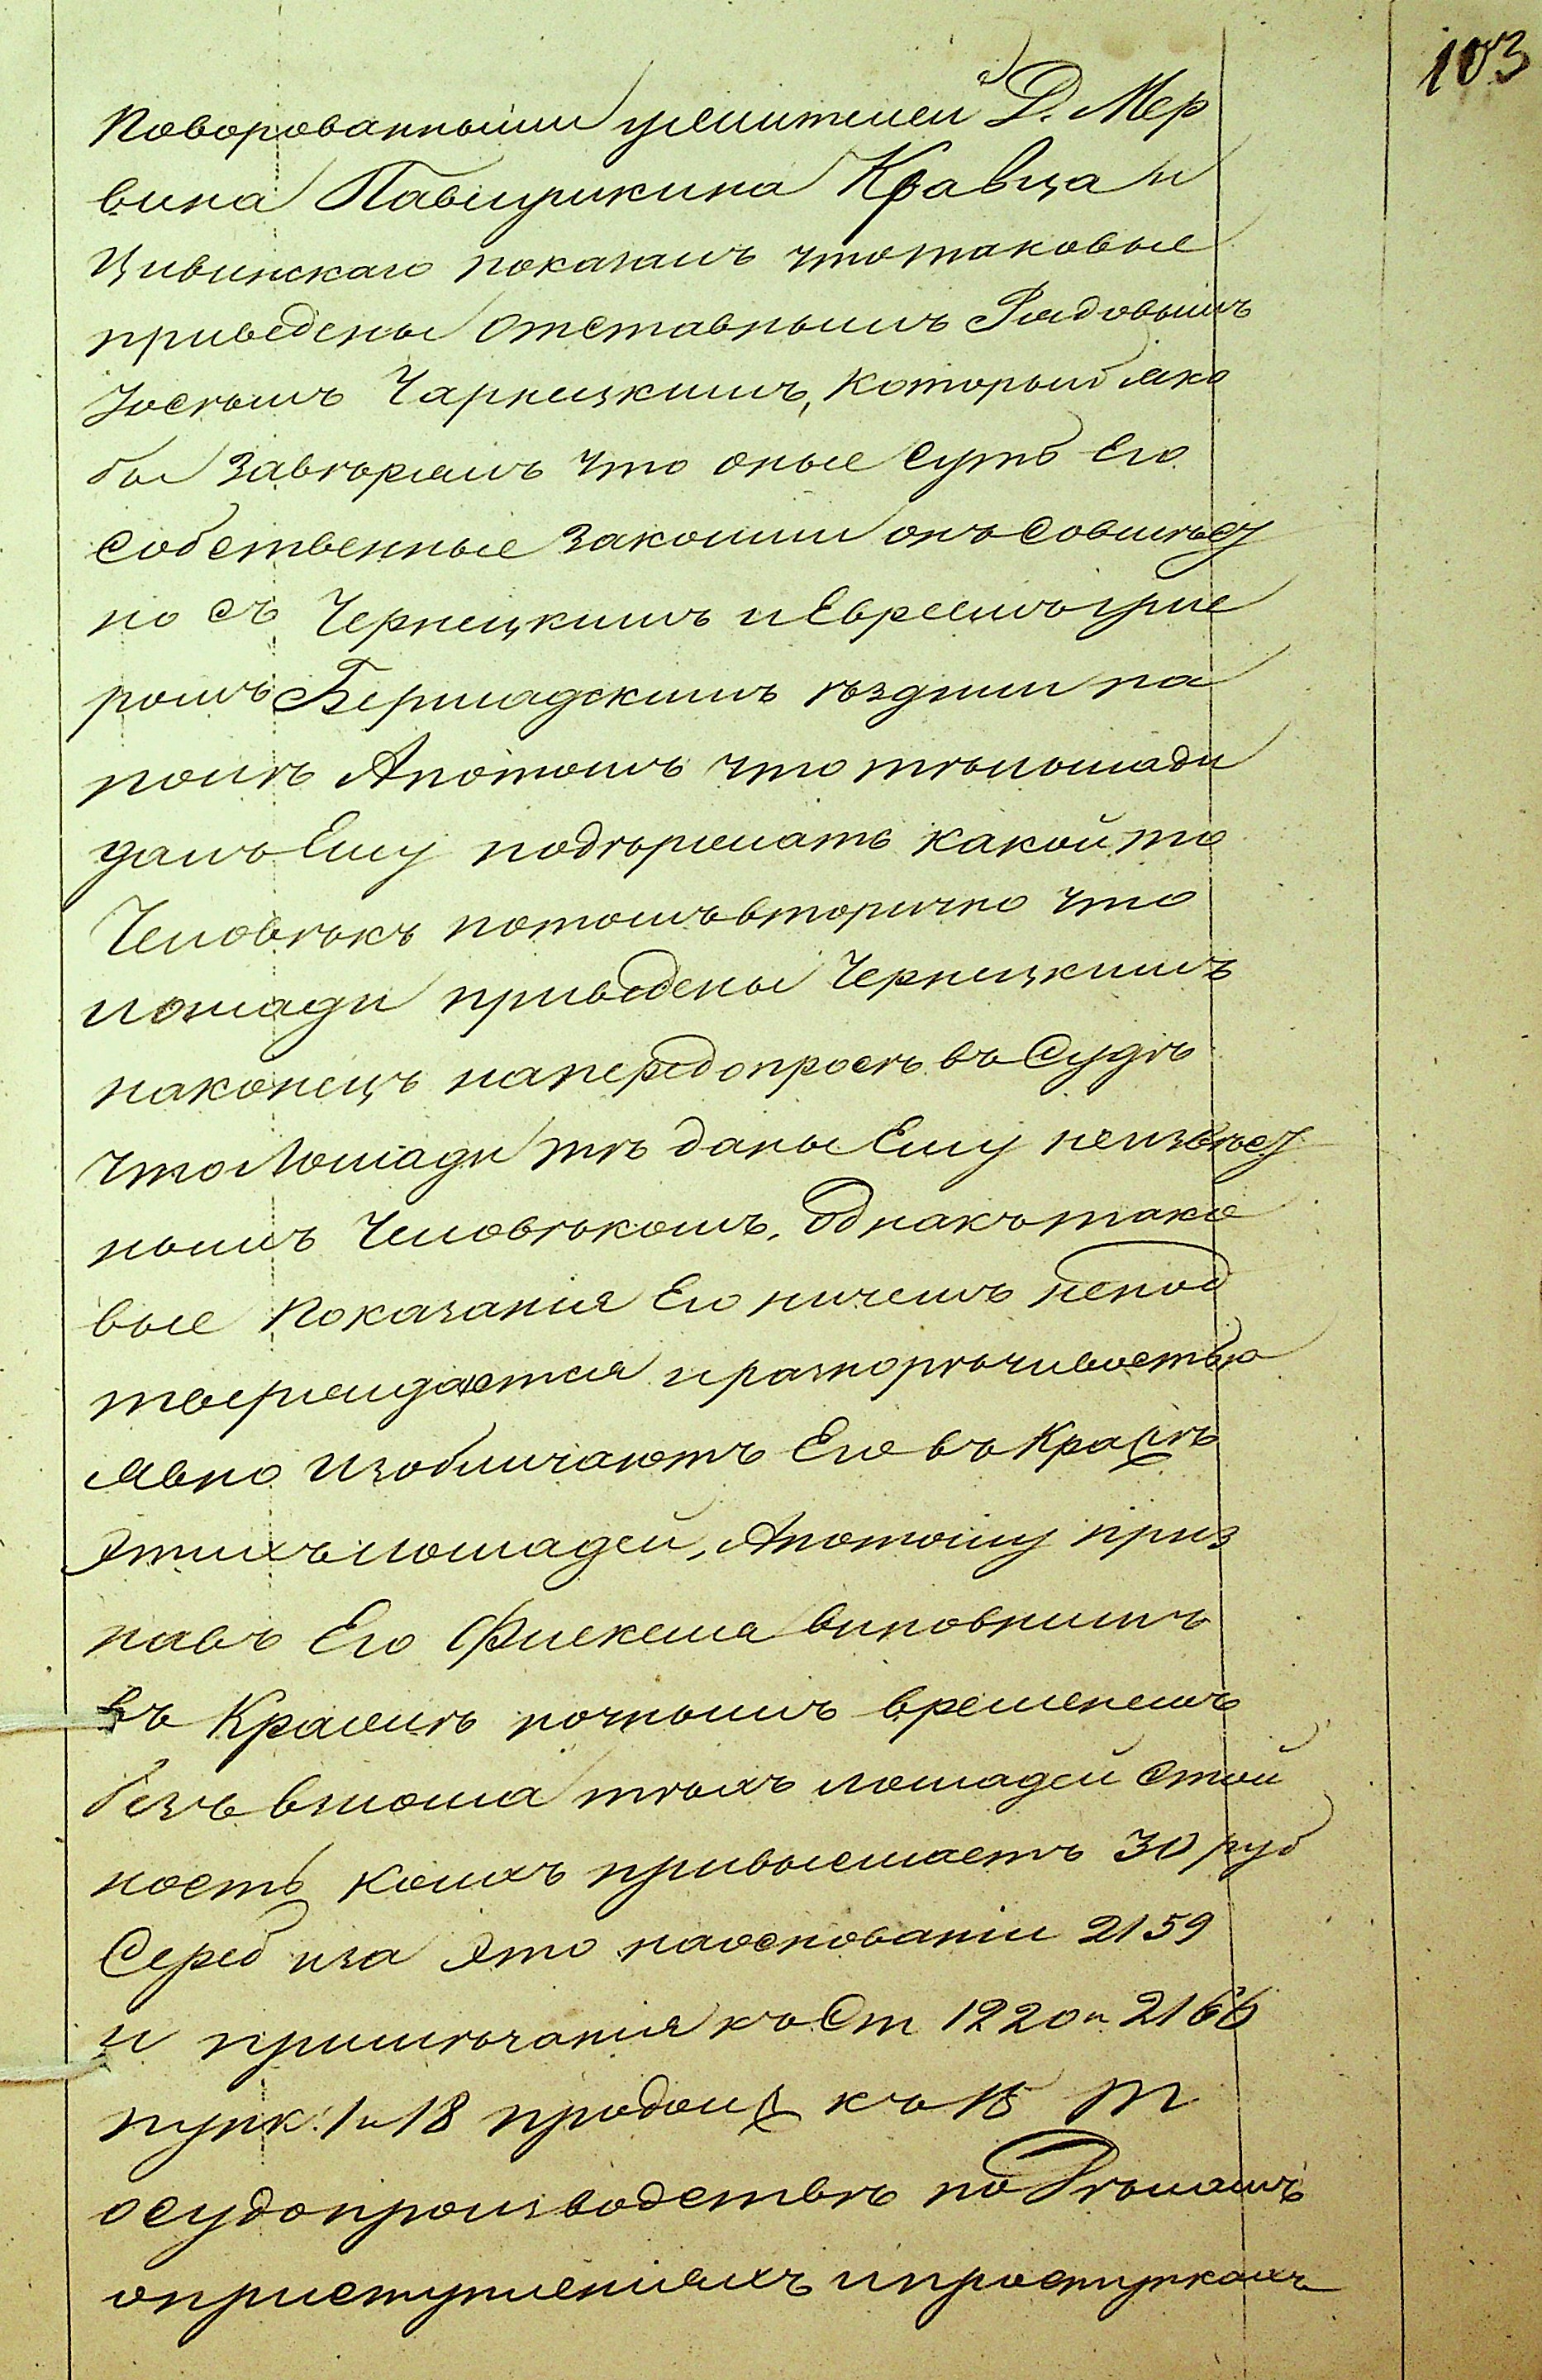 103
поворованными у жителей Д. Мер
вина Павлушкина Кравца и
Цивинскаго показалъ чтотаковые
приведены отставнымъ Рядовымъ
Іосѣомъ Чарнецкимъ, который яко
бы завѣрялъ что оные суть Его
собственные законми онъ совмѣс
но съ Чернецкимъ иЕвреемъ
Бершадскимъ ѣздили на
Апотомъ что тѣлошади
далъ Ему подѣржать какой то
Человѣкъ потомъвторично что
лошади приведены Чернецкимъ
наконецъ напередопросѣ въ Судѣ
что Лошади тѣ даны Ему неизвѣс
нымъ Человѣкомъ, однакътако
вые показанія Его ничемъ непод
тверждается иразнорѣчивостью
явно изобличаютъ Его въ Кражѣ
этихълошадей, Апотому приз
навъ Его Флекеля виновнымъ
въ Кражѣ ночнымъ временемъ
безъ взлома тѣхъ лошадей стой
ность коихъ привысшаетъ 30 руб
Сереб иза это наоснованіи 2159
и примѣчанія къ Ст 1220 и 2166
пунк: 1 и 18 продолж къ 15 Т
осудопроизводствѣ по Дѣламъ
оприступленіяхъ ипроступкахъ